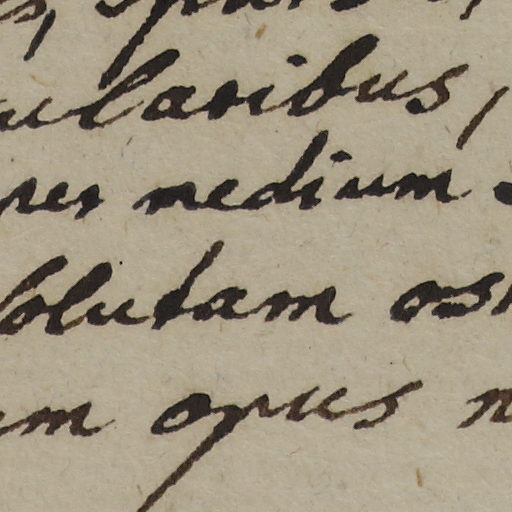 ularibus,
per medium
solutam os
um opus n